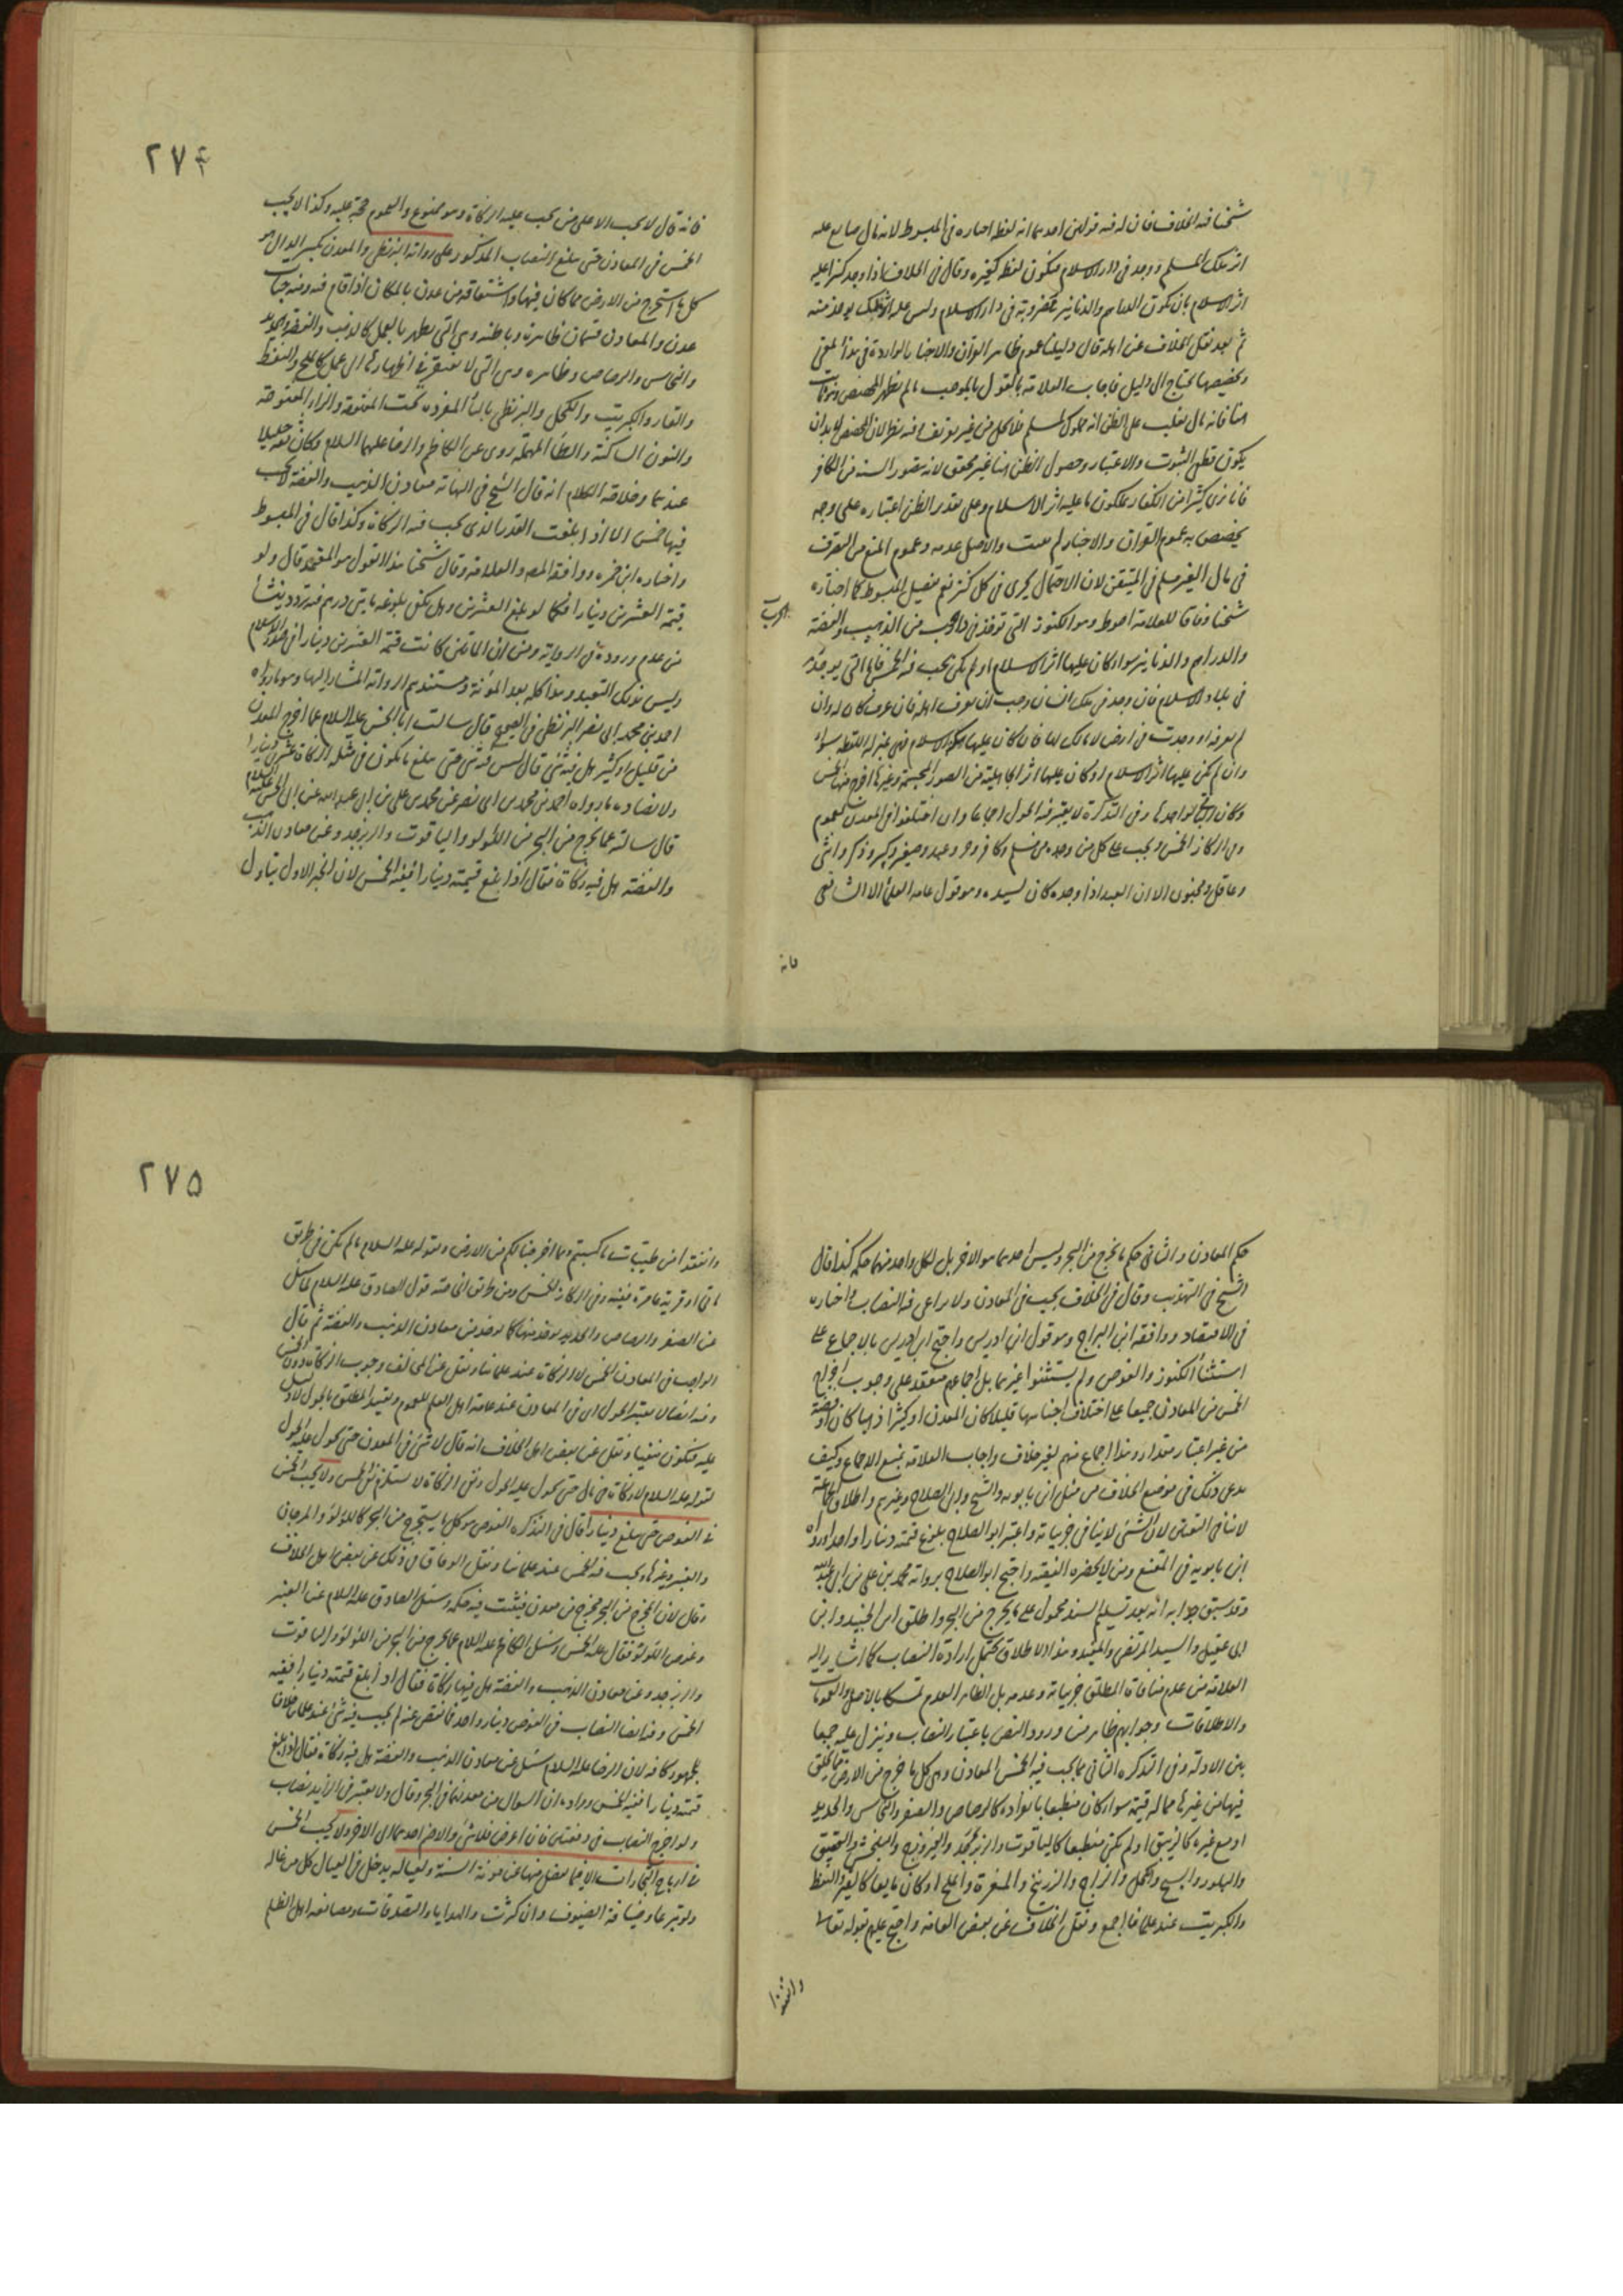 شيخنا فيه الخلاف فان له فيه قولين احدهما انه لقطة اختاره في المبسوط لانه مال ضايع عليه
اثر ملك المسلم ووجد في دار الاسلام فيكون لقطة كغيره وقال في الخلاف اذا وجد كنزا عليه
اثر الاسلام بان تكون الدراهم والدنانير مضروبة في دار الاسلام وليس عليه اثر ملك يؤخذ منه
ثم بعد نقل الخلاف عن اهله قال دليلنا عموم ظاهر القرآن والاخبار الواردة في هذا المعنى
وتخصيصها يحتاج الى دليل فاجاب العلامة بالقول بالموجب ما لم يظهر المخصص
هنا فانه مال يغلب على الظن انه مملوك لمسلم فلا يحل من غير تعريف وفيه نظر لان المخصص لا بد ان
يكون قطعي الثبوت والاعتبار وحصول الظن هنا غير محقق لانه مقصور السنة في الكافر
فانا نرى كثيرا من الكفار يملكون ما عليه اثر الاسلام وعلى تقدير الظن اعتباره على وجه
يخصص به عموم القرآن والاخبار لم يثبت والاصل عدمه وعموم المنع من التصرف
في مال الغير مسلم في المتيقن لان الاحتمال يجري في كل كنز نعم تفصيل المبسوط كما اختاره
شيخنا وفاقا للعلامة احوط وهو الكنوز التي توخذ في دار الحرب من الذهب والفضة
والدراهم والدنانير سواء كان عليها اثر الاسلام او لم يكن يجب فيه الخمس فاما التي يوجد
في بلاد الاسلام فان وجد في ملك انسان وجب ان يعرف اهله فان عرفه كان له وان
لم يعرفه او وجدت في ارض لا مالك لها فان كان عليها سكة الاسلام فهي بمنزلة اللقطة سواء
وان لم يكن عليها اثر الاسلام او كان عليها اثر الجاهلية من الصور المجسمة وغيرها اخرج منها الخمس
وكان الباقي لواجدها وفي التذكرة لا يعتبر فيه الحول اجماعا وان اختلفوا في المعدن لعموم
وفي الركاز الخمس ويجب على كل من وجده من مسلم وكافر وحر وعبد وصغير وكبير وذكر وانثى
وعاقل ومجنون الا ان العبد اذا وجده كان لسيده وهو قول عامة العلماء الا الشافعي
فانه
٢٧٤
فانه قال لا يجب الا على من يجب عليه الزكاة وهو ممنوع والعموم حجة عليه وكذا لا يجب
الخمس في المعادن حتى يبلغ النصاب المذكور على رواية البزنطي والمعدن بكسر الدال هو
كل ما استخرج من الارض مما كان فيها واشتقاقه من عدن بالمكان اذا اقام فيه ومنه جنات
عدن والمعادن قسمان ظاهرة وباطنة وهي التي يظهر بالعمل كالذهب والفضة والحديد
والنحاس والرصاص وظاهرة وهي التي لا يفتقر في اظهارها الى عمل كالملح والنفط
والقار والكبريت والكحل والبزنطي بالباء المفردة تحت المفتوحة والزاء المفتوحة
والنون الساكنة والطاء المهملة روى عن الكاظم والرضا عليهما السلام وكان ثقة جليلا
عندهما وخلاصة الكلام انه قال الشيخ في النهاية معادن الذهب والفضة لا يجب
فيها خمس الا اذا بلغت القدر الذي يجب فيه الزكاة وكذا قال في المبسوط
واختاره ابن حمزة ووافقه المصنف والعلامة وقال شيخنا هذا القول هو المعتمد قال ولو
قيمة العشرين دينارا فكما لو بلغ العشرين وهل يكفي بلوغه مايتي درهم فيه تردد ينشأ
من عدم وروده في الرواية ومن ان المائتين كانت قيمة العشرين دينارا في صدر الاسلام
وليس ذلك التعبد وهذا كله بعد المؤنة ومستندهم الرواية المشار اليها وهو ما رواه
احمد بن محمد بن ابي نصر البزنطي في الصحيح قال سالت ابا الحسن عليه السلام عما اخرج المعدن
من قليل او كثير هل فيه شئ قال ليس فيه شئ حتى يبلغ ما يكون في مثله الزكاة عشرين دينارا
ولا يضاده ما رواه احمد بن محمد بن ابي نصر عن محمد بن علي بن ابي عبد الله عن ابي الحسن عليه السلام
قال سالته عما يخرج من البحر من اللؤلؤ والياقوت والزبرجد وعن معادن الذهب
والفضة هل فيه زكاة فقال اذا بلغ قيمته دينارا ففيه الخمس لان الخبر الاول يتناول
حكم المعادن والثاني حكم ما يخرج من البحر وليس احدهما هو الاخر بل لكل واحد منهما حكم كذا قال
الشيخ في التهذيب وقال في الخلاف يجب في المعادن ولا يراعى فيه النصاب واختاره
في الاقتصاد ووافقه ابن البراج وهو قول ابن ادريس واحتج ابن ادريس بالاجماع على
استثناء الكنوز والغوص ولم يستثنوا غيرهما بل اجماعهم منعقد على وجوب اخراج
الخمس من المعادن جميعا على اختلاف اجناسها قليلا كان المعدن او كثيرا ذهبا كان او فضة
من غير اعتبار مقدار وهذا اجماع منهم بغير خلاف واجاب العلامة بمنع الاجماع وكيف
يدعى ذلك في موضع الخلاف من مثل ابن بابويه والشيخ وابي الصلاح وغيرهم واطلاق الجماعة
لا ينافي التوقيت لان الشئ لا ينافي جزئياته واعتبر ابو الصلاح بلوغ قيمته دينارا واحدا ورواه
ابن بابويه في المقنع ومن لا يحضره الفقيه واحتج ابو الصلاح برواية محمد بن علي بن ابي عبد الله
وقد سبق جوابه انه بعد تسليم السند محمول على ما يخرج من البحر واطلق ابن الجنيد وابن
ابي عقيل والسيد المرتضى والمفيد وهذا الاطلاق يحتمل ارادة النصاب كما اشار اليه
العلامة من عدم منافاة المطلق جزئياته وعدمه بل الظاهر العدم تمسكا بالاصل والعمومات
والاطلاقات وجوابهم ظاهر منا ورود النص باعتبار النصاب وينزل عليه جمعا
بين الادلة وفي التذكرة الثاني مما يجب فيه الخمس المعادن وهي كل ما خرج من الارض مما يخلق
فيها من غيرها مما له قيمة سواء كان منطبعا بانفراده كالرصاص والصفر والنحاس والحديد
او مع غيره كالزيبق او لم يكن منطبعا كالياقوت والزبرجد والفيروزج والبلخش والعقيق
والبلور والسبج والكحل والزاج والزرنيخ والمغرة والملح او كان مايعا كالقير والنفط
والكبريت عند علمائنا اجمع ونقل الخلاف عن بعض العامة واحتج عليهم بقوله تعالى
وانفقوا
٢٧٥
وانفقوا من طيبات ما كسبتم ومما اخرجنا لكم من الارض وبقوله عليه السلام ما لم يكن في طريق
ماتي او قرية عامرة ففيه وفي الركاز الخمس ومن طريق الخاصة قول الصادق عليه السلام لما سئل
عن الصفر والرصاص والحديد يوخذ منها كما يوخذ من معادن الذهب والفضة ثم قال
الواجب في المعادن الخمس لا الزكاة عند علمائنا ونقل عن المخالف وجوب الزكاة دون الخمس
وفيه ايضا لا يعتبر الحول في المعادن عند عامة اهل العلم للعموم وتقييد المطلق بالحول لا دليل
عليه فيكون منفيا ونقل عن بعض اهل الخلاف انه قال لا شئ في المعدن حتى يحول عليه الحول
لقوله عليه السلام لا زكاة في مال حتى يحول عليه الحول ونفي الزكاة لا يستلزم نفي الخمس ولا يجب الخمس
في الغوص حتى يبلغ دينارا قال في التذكرة الغوص هو كل ما يستخرج من البحر كاللؤلؤ والمرجان
والعنبر وغيرها ويجب فيه الخمس عند علمائنا ونقل الوفاق في ذلك عن بعض اهل الخلاف
وقال لان المخرج من البحر مخرج من معدن فيثبت فيه حكمه وسئل الصادق عليه السلام عن العنبر
وغوص اللؤلؤ فقال عليه الخمس وسئل الكاظم عليه السلام عما يخرج من البحر من اللؤلؤ والياقوت
والزبرجد وعن معادن الذهب والفضة هل فيها زكاة فقال اذا بلغ قيمته دينارا ففيه
الخمس وفيه ايضا النصاب في الغوص دينار واحد فما نقص عنه لم يجب فيه شئ عند علمائنا خلافا
للجمهور كافة لان الرضا عليه السلام سئل عن معادن الذهب والفضة هل فيه زكاة فقال اذا بلغ
قيمته دينارا ففيه الخمس ومراده ان السؤال من معدنهما في البحر وقال ولا يعتبر في الزايد نصاب
ولو اخرج النصاب في دفعتين فان اعرض فلا شئ والا ضم احدهما الى الاخر ولا يجب الخمس
في ارباح التجارات الا فيما يفضل منها عن مؤنة السنة له ولعياله يدخل في العيال كل من عاله
ولو تبرعا وضيافة الضيوف وان كثرت والهدايا والصدقات ومصانعة اهل الظلم